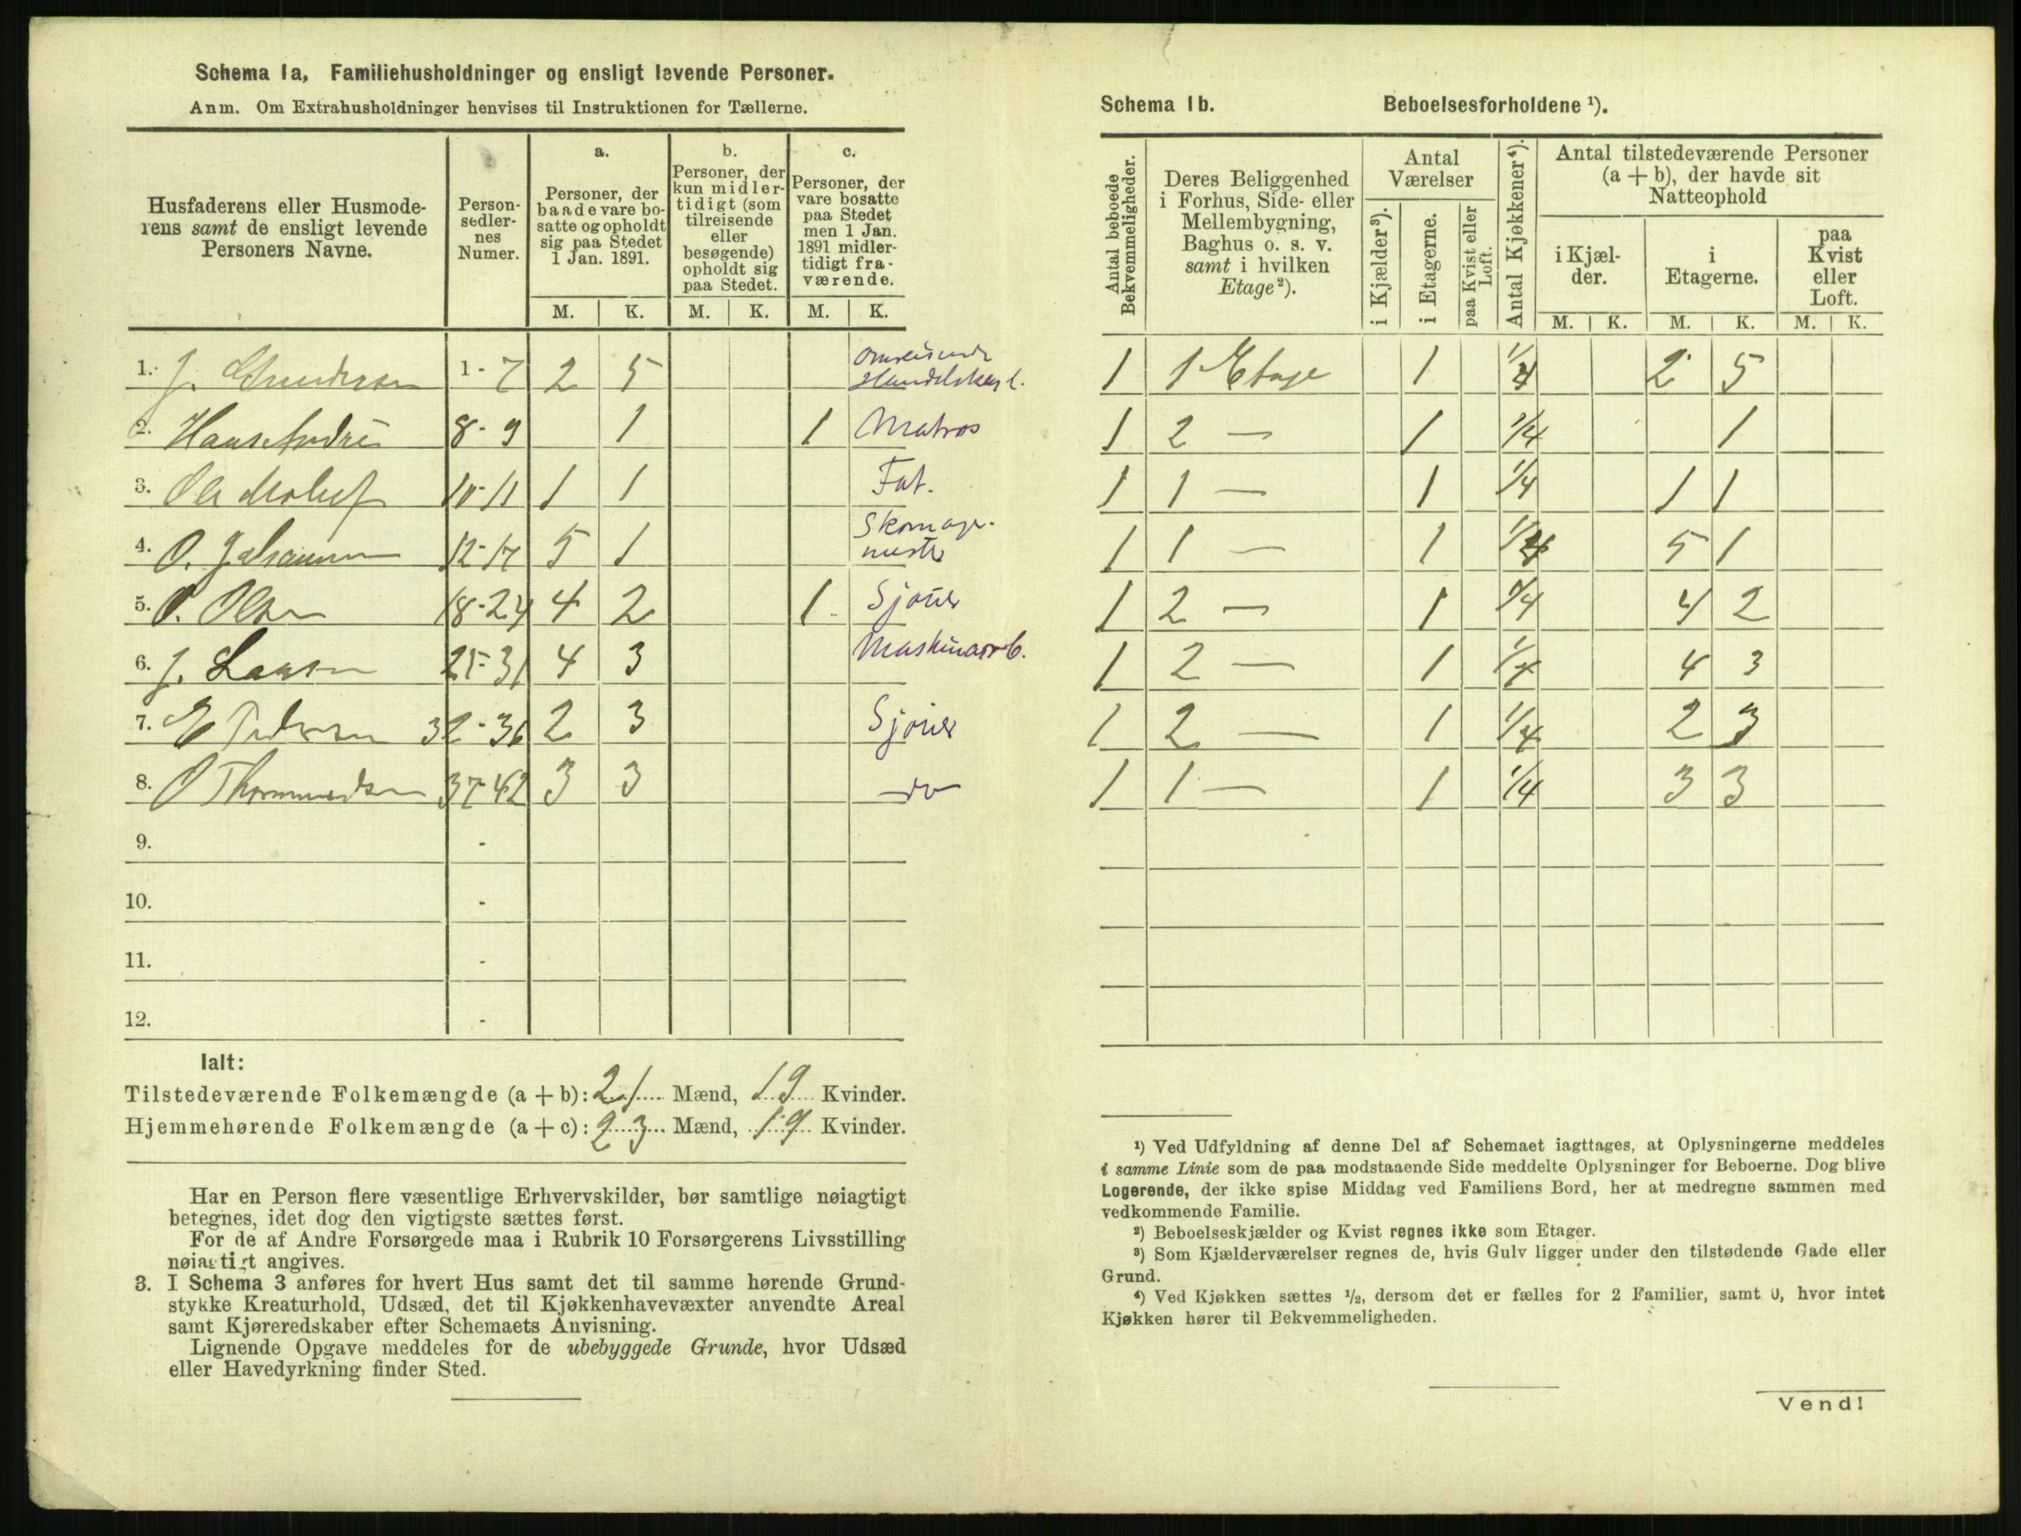 Schema 1a, Familiehusholdninger og ensligt levende Personer.
Anm. Om Extrahusholdninger henvises til Instruktionen for Tællerne.
Husfaderens eller Husmode-
rens samt de ensligt levende
Personers Navne.
Person-
sedler-
nes
Numer.
a.
Personer, der
baade vare bo-
satte og opholdt
sig paa Stedet
1 Jan. 1891.
b.
Personer, der
kun midler-
tidigt (som
tilreisende
eller
besøgende)
opholdt sig
paa Stedet.
c.
Personer, der
vare bosatte
paa Stedet
men 1 Jan.
1891 midler-
tidigt fra-
værende.
M. K. M. K. M. K.
1. J. Gundersen 1 - 7 2 5 Omreisende Handelskarl.
2. Hans Andre 8 - 9 1 1 Matros
3. Ole 10-11 1 1 Fat.
4. O. Johansen 12-17 5 1 Skomagermester
5. O. Olsen 18-24 4 2 1 Sjouer
6. J. Larsen 25-31 4 3 Maskinarb.
7. E Pedersen 32-36 2 3 Sjouer
8. O Thormundsen 37-42 3 3 — do —
9. -
10. -
11. -
12. -
Ialt:
Tilstedeværende Folkemængde (a + b): 21 Mænd, 19 Kvinder.
Hjemmehørende Folkemængde (a + c): 23 Mænd, 19 Kvinder.
Har en Person flere væsentlige Erhvervskilder, bør samtlige nøiagtigt
betegnes, idet dog den vigtigste sættes først.
For de af Andre Forsørgede maa i Rubrik 10 Forsørgerens Livsstilling
nøiagtigt angives.
3. I Schema 3 anføres for hvert Hus samt det til samme hørende Grund-
stykke Kreaturhold, Udsæd, det til Kjøkkenhavevæxter anvendte Areal
samt Kjøreredskaber efter Schemaets Anvisning.
Lignende Opgave meddeles for de ubebyggede Grunde, hvor Udsæd
eller Havedyrkning finder Sted.
Schema 1b. Beboelsesforholdene ¹).
Antal beboede
Bekvemmeligheder.
Deres Beliggenhed
i Forhus, Side- eller
Mellembygning,
Baghus o. s. v.
samt i hvilken
Etage ²).
Antal
Værelser
i Kjælder ³).
i Etagerne.
paa Kvist eller
Loft.
Antal Kjøkkener ⁴).
Antal tilstedeværende Personer
(a + b), der havde sit
Natteophold
i Kjæl-
der.
i
Etagerne.
paa
Kvist
eller
Loft.
M. K. M. K. M. K.
1 1 Etage 1 1/4 2 5
1 2 — 1 1/4 1
1 1 — 1 1/4 1 1
1 1 — 1 1/4 5 1
1 2 — 1 1/4 4 2
1 2 — 1 1/4 4 3
1 2 — 1 1/4 2 3
1 1 — 1 1/4 3 3
¹) Ved Udfyldning af denne Del af Schemaet iagttages, at Oplysningerne meddeles
i samme Linie som de paa modstaaende Side meddelte Oplysninger for Beboerne. Dog blive
Logerende, der ikke spise Middag ved Familiens Bord, her at medregne sammen med
vedkommende Familie.
²) Beboelseskjælder og Kvist regnes ikke som Etager.
³) Som Kjælderværelser regnes de, hvis Gulv ligger under den tilstødende Gade eller
Grund.
⁴) Ved Kjøkken sættes 1/2, dersom det er fælles for 2 Familier, samt 0, hvor intet
Kjøkken hører til Bekvemmeligheden.
Vend!